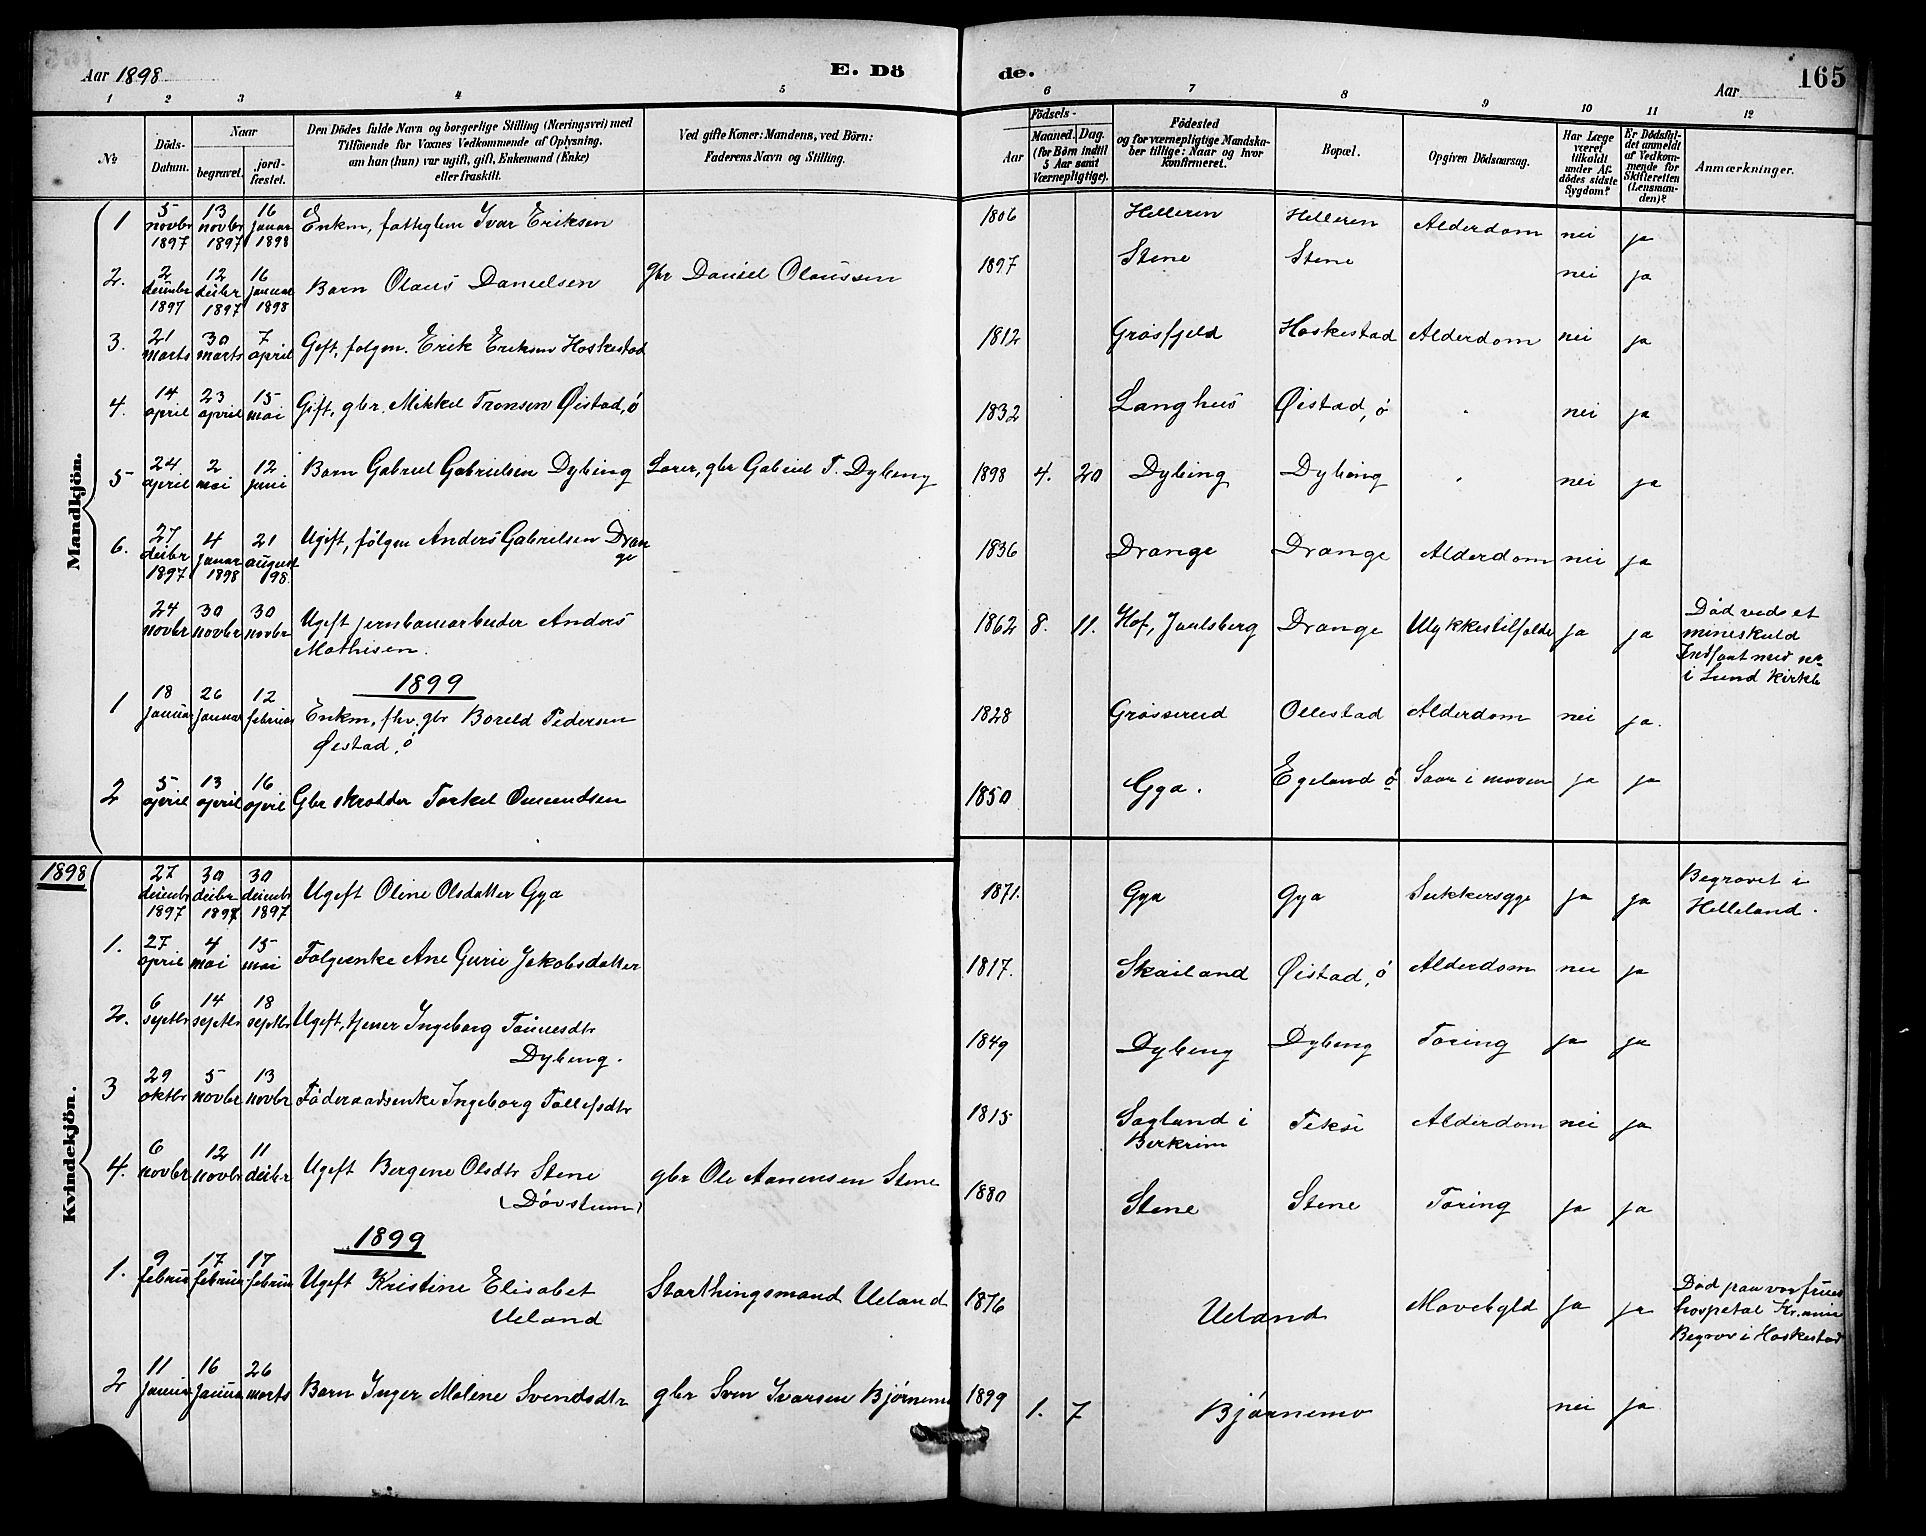 Aar 1898
E. Dö
de.
Aar
165
1 2 3 4 5 6 7 8 9 10 11 12
№
Döds-
Datum.
Naar
begravet.
jord-
fæstet.
Den Dödes fulde Navn og borgerlige Stilling (Næringsvei) med
Tilföiende for Voxnes Vedkommende af Oplysning,
om han (hun) var ugift, gift, Enkemand (Enke)
eller fraskilt.
Ved gifte Koner: Mandens, ved Börn:
Faderens Navn og Stilling.
Födsels-
Aar
Maaned.
Dag.
(for Börn indtil
5 Aar samt
Værnepligtige).
Födested
og for værnepligtige Mandska-
ber tillige: Naar og hvor
konfirmeret.
Bopæl.
Opgiven Dödsaarsag.
Har Læge
været
tilkaldt
under Af-
dödes sidste
Sygdom?
Er Dödsfal-
det anmeldt
af Vedkom-
mende for
Skifteretten
(Lensman-
den)?
Anmærkninger.
Mandkjön.
1 5 novbr 1897 13 novbr 1897 16 januar 1898 Enkm, fattiglem Ivar Eriksen 1806 Helleren Helleren Alderdom nei ja
2. 2 deimbr 1897 12 deibr 1897 16 januar 1898 Barn Olaus Danielsen gbr Daniel Olaussen 1897 Stene Stene nei ja
3. 21 marts 30 marts 7 april Gift, folgm. Erik Eriksen Hoskestad 1812 Grøsfjeld Hoskestad Alderdom nei ja
4. 14 april 23 april 15 mai Gift, gbr. Mikkel Tronsen Øistad, ø 1832 Langhus Øistad, ø " nei ja
5 24 april 2 mai 12 juni Barn Gabriel Gabrielsen Dybing Lærer, gbr Gabriel T. Dybing 1898 4. 20 Dybing Dybing " nei ja
6. 27 deibr 1897 4 januar 1898 21 august 98. Ugift, følgm Anders Gabrielsen Dran
ge 1836 Drange Drange Alderdom nei ja
24 novbr 30 novbr 30 novbr Ugift jernbanearbeider Anders
Mathisen. 1862 8. 11. Hof, Jarlsberg Drange Ulykkestilfælde ja ja Død veds et
mineskud
Indfaat med
i Lund Kirkeb
1899
1 18 januar 26 januar 12 februar Enkm, fhv. gbr Boreld Pedersen
Øistad, ø 1828 Grøssereid Ollestad Alderdom nei ja.
2 5 april 13 april 16 april Gbr skrædder Torkel Omundsen 1850 Gya. Egeland ø Saar i maven ja ja
1898
Kvindekjön.
27 deimbr 1897 30 deibr 1897 30 deimbr 1897 Ugift Oline Olsdatter Gya 1871. Gya Gya Sukkersyge ja ja Begravet i
Helleland.
1. 27 april 4 mai 15 mai Følgeenke Ane Gurie Jakobsdatter 1817. Skailand Øistad, ø Alderdom nei ja
2. 6 septbr 14 septbr 18 septbr Ugift, tjener Ingeborg Tønnesdtr
Dybing. 1849 Dybing Dybing Tæring ja ja
3 29 oktbr 5 novbr 13 novbr Føderaadsenke Ingeborg Tollefsdtr 1815 Sagland i
Berkrim Teksø Alderdom nei ja
4. 6 novbr 12 novbr 11 deibr Ugift Bergene Olsdtr Stene
(Døvstum) gbr Ole Aanensen Stene 1880 Stene Stene Tæring ja ja
1899
1. 9 februar 17 februar 17 februar Ugift Kristine Elisabet
Ueland Storthingsmand Ueland 1876 Ueland Mavebyld ja ja Død paa vor frues
hospetal Kr.ania
Begrav i Hoskestad
2 11 januar 16 januar 26 marts Barn Inger Malene Svendsdtr gbr Sven Ivarsen Bjørnemo 1899 1. 7 Bjørnemo nei ja